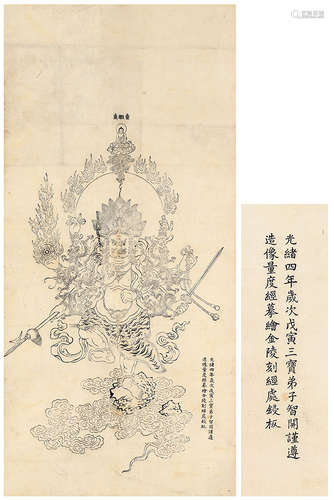 光緒四年歲次戊寅三寶弟子智開謹遵
造像量度經摹繪金陵刻經處鋟板
光緒四年歲次戊寅三寶弟子智開謹遵
造像量度經摹繪金陵刻經處鋟板